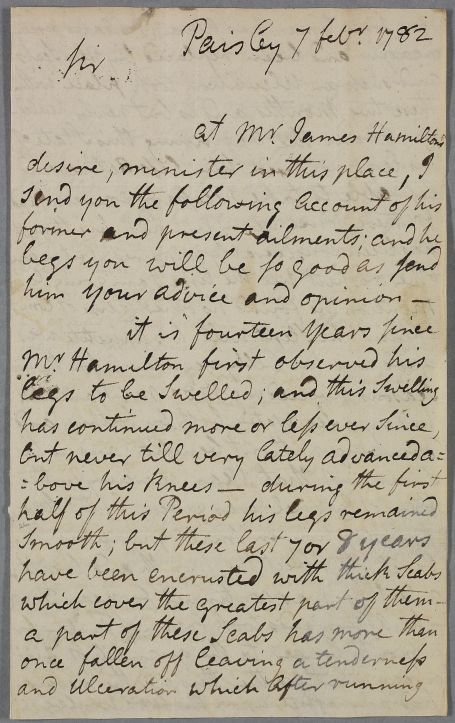 Paisley 7 febr. 1782
Sir
at Mr. James Hamiltons
desire, minister in this place, I
send you the following Account of his
former and present ailments; and he
begs you will be so good as send
him your advice and opinion —
it is fourteen years since
Mr Hamilton first observed his
legs to be Swelled; and this Swelling
has continued more or less ever Since,
but never till very lately advanced a=
=bove his Knees — during the first
half of this Period his legs remained
Smooth; but these last 7 or 8 years
have been encrusted with thick Scabs
which cover the greatest part of them —
a part of these Scabs has more than
once fallen off leaving a tenderness
and Ulceration which after running